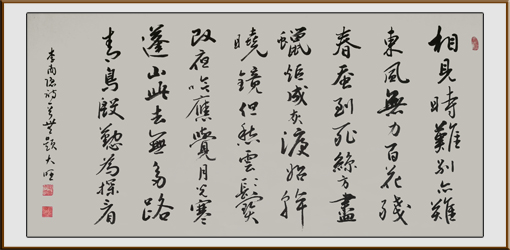 相見時難別亦難
東風無力百花殘
春蚕到死絲方盡
蠟炬成灰淚始幹
曉鏡但愁雲鬓
改夜吟應覺月光寒
蓬山此去無多路
青鳥殷懃為探看
李商隐詩無題大